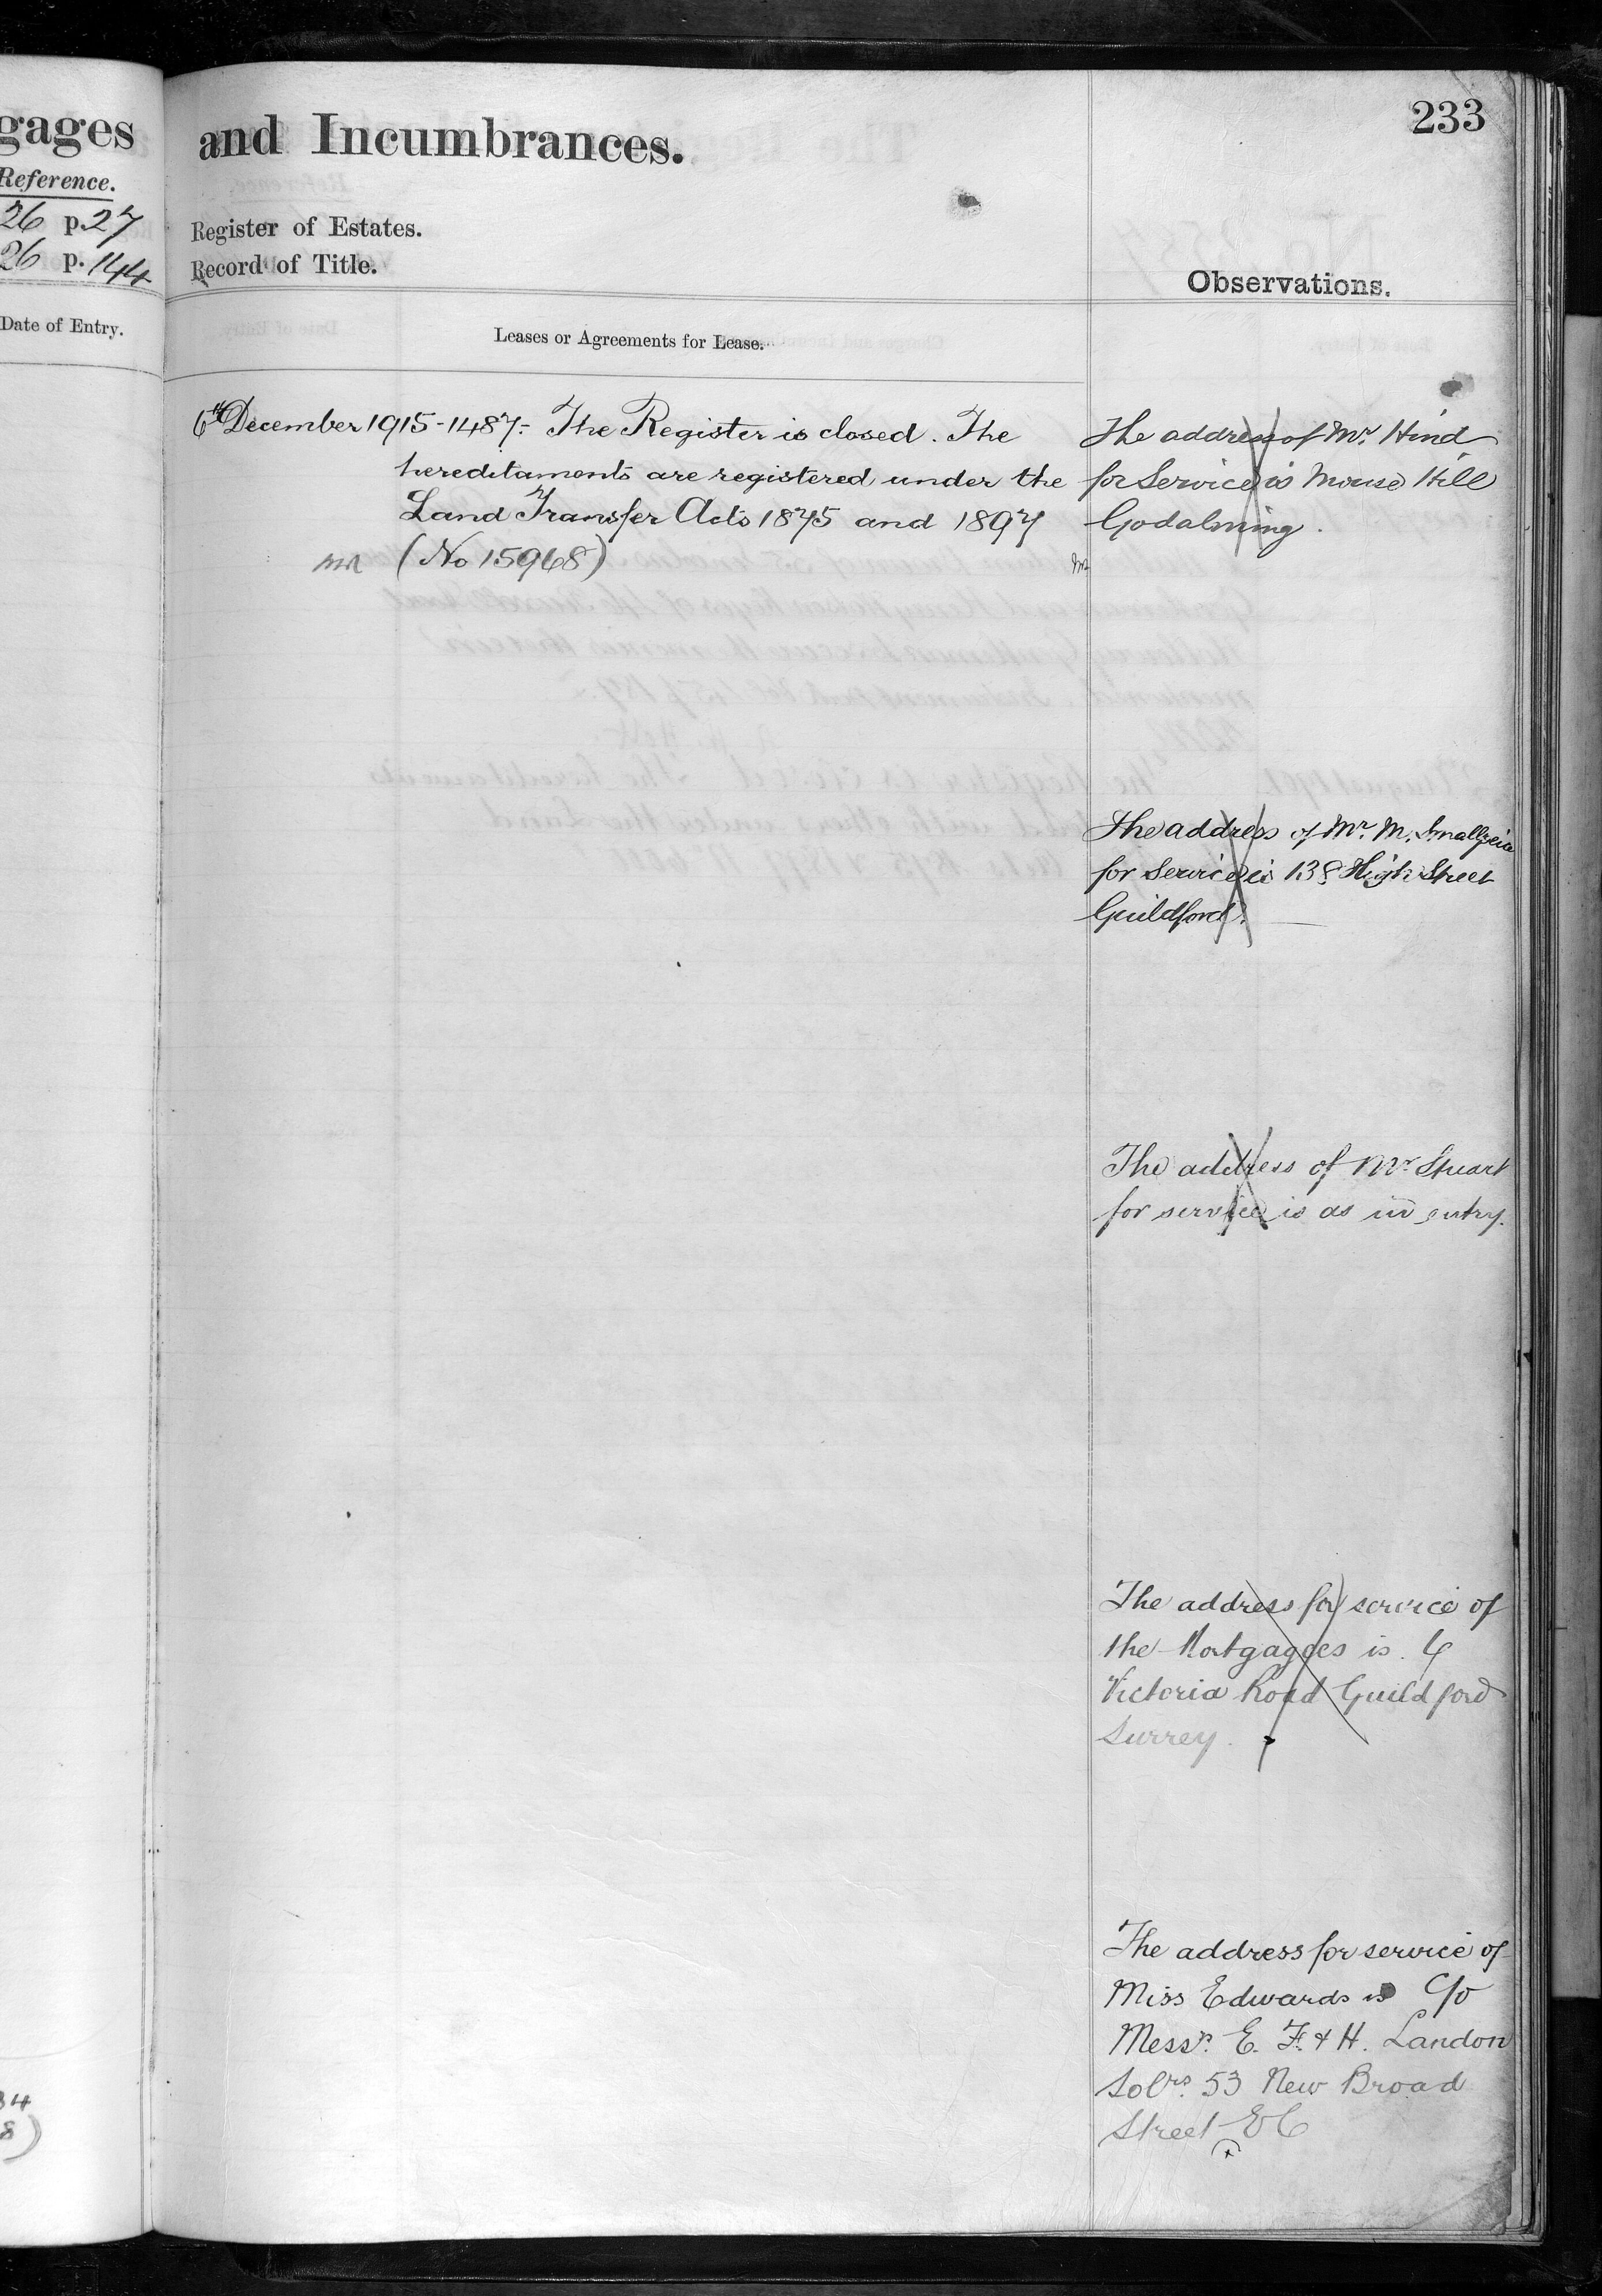 gages
Reference.
26 p.27
26 p.144
Date of Entry.
34
8)
233
and Incumbrances.
Register of Estates.
Record of Title.
Observations.
Leases or Agreements for Lease.
6th December 1915-1487- The Register is closed. The
hereditaments are registered under the
Land Transfer Acts 1875 and 1897
(No 15968)
The address of Mr. Hind
for Service is Mouse Hill
Godalming.
The address of Mr. M. Smallpeice
for Service is 138 High Street
Guildford.
The address of Mr. Stuart
for service is as in entry.
The address for service of
the Mortgagees is 4
Victoria Road Guildford
Surrey.
The address for service of
Miss Edwards is C/o
Messrs. E. F. & H. Landon
Solrs. 53 New Broad
Street EC